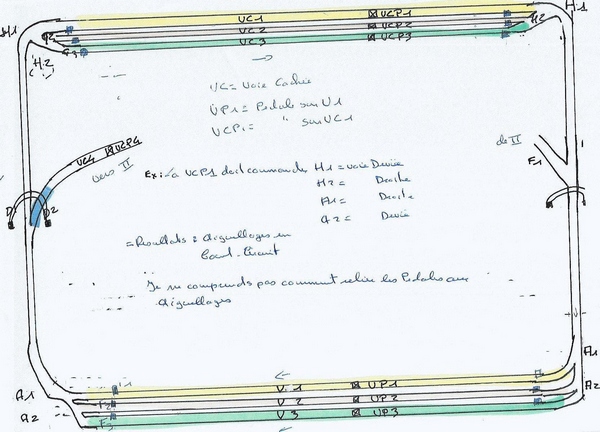 H1
VC1 VCP1
VC2 VCP2
VC3 VCP3
H2
H1
H2
VC = Voie Cachée
UP1 = Pedale sur V1
VCP1 = " sur VC1
VC4 VCP4
vers II
de II
F1
Ex: la VCP1 doit commander H1 = voie Deviée
H2 = Droite
A1 = Droite
A2 = Deviée
D2
= Resultats : Aiguillages en
Court-Circuit
Je ne comprends pas comment relier les Pedales aux
Aiguillages
A1
A1
V1 UP1
A2
F2 V2 UP2
A2
F3 V3 UP3